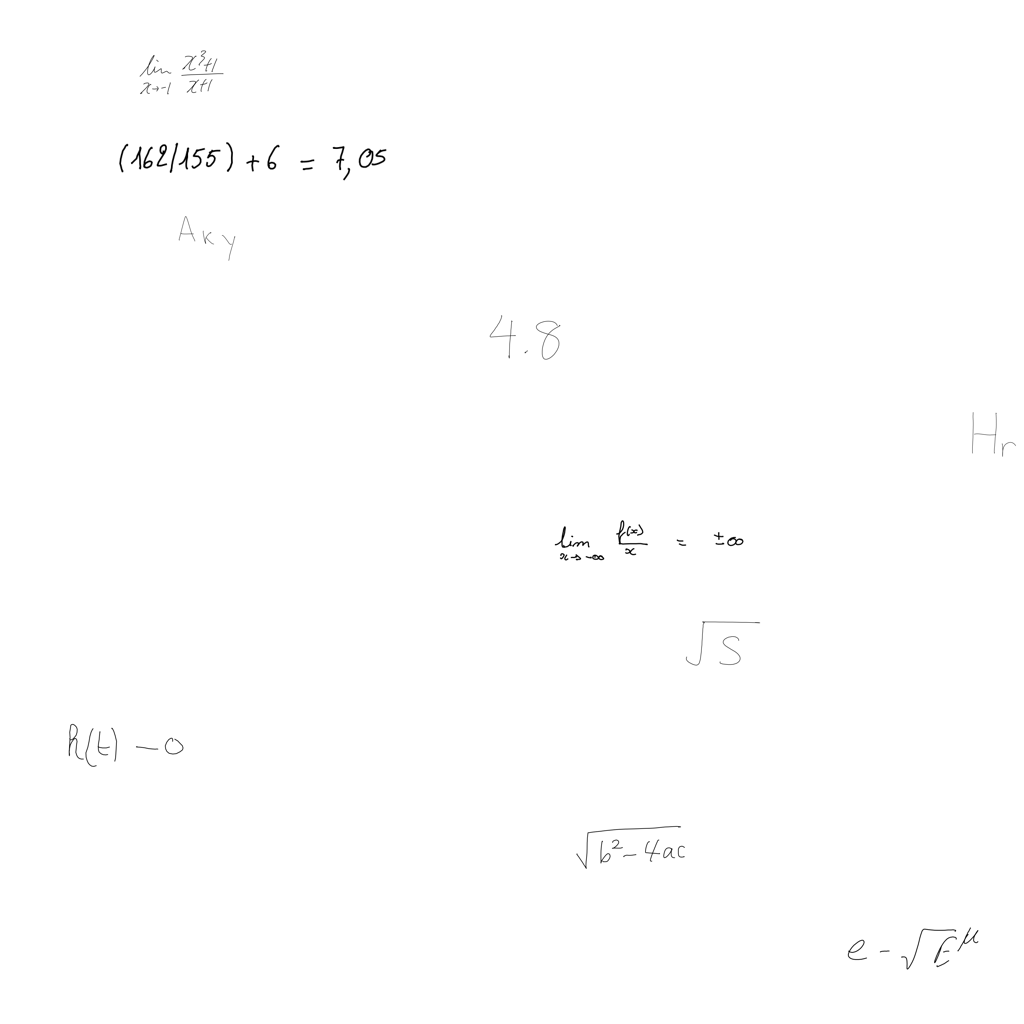 lim x→-1 (x³+1)/(x+1)
(162/155) + 6 = 7,05
A_{Ky}
4.8
H_r
lim x→-∞ f(x)/x = ±∞
√S
h(t) - 0
√(b² - 4ac)
e - √E^μ